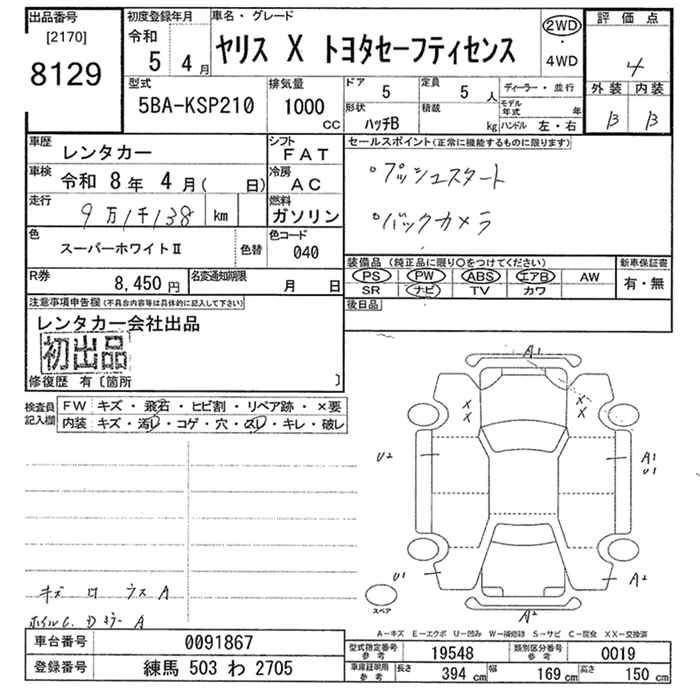 出品番号
[2170]
8129
初度登録年月
令和
5 4月
車名・グレード
ヤリス X トヨタセーフティセンス
2WD
・
4WD
評価点
4
外装 内装
B B
型式
5BA-KSP210
排気量
1000
CC
ドア 5
定員 5人
形状
ハッチB
積載
kg
ディーラー・並行
モデル
年式 年
ハンドル 左・右
車歴
レンタカー
シフト
FAT
車検
令和 8年 4月( 日)
冷房
AC
走行
9万1千138 km
燃料
ガソリン
色
スーパーホワイトⅡ
色替
色コード
040
R券
8,450円
名変通知期限
月 日
セールスポイント(正常に機能するものに限ります)
°プッシュスタート
°バックカメラ
装備品(純正品に限り○をつけてください)
新車保証書
PS PW ABS エアB AW
SR ナビ TV カワ
有・無
後日品
注意事項申告欄(不具合内容等は具体的に記入して下さい)
レンタカー会社出品
初出品
修復歴 有〔箇所 〕
検査員
記入欄
FW キズ・飛石・ヒビ割・リペア跡・×要
内装 キズ・汚レ・コゲ・穴・スレ・キレ・破レ
A1
X X
X X
U2
A1
U1
U1
A2
A2
スペア
A
A
A-キズ E-エクボ U-凹み W-補修跡 S-サビ C-腐食 XX-交換済
車台番号
0091867
登録番号
練馬 503 わ 2705
型式指定番号
参考
19548
類別区分番号
参考
0019
車庫証明用
参考
長さ 394 cm 幅 169 cm 高さ 150 cm